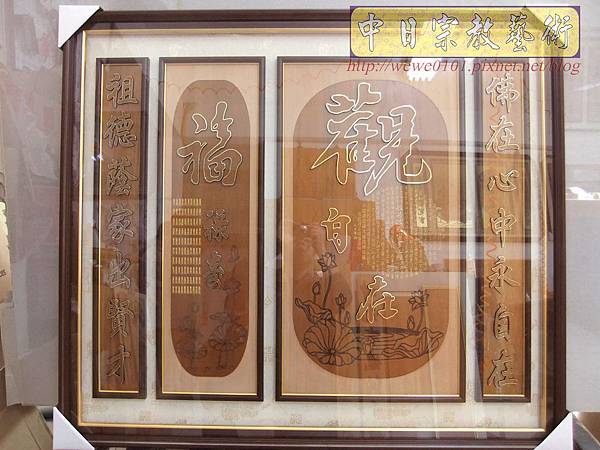 中日宗教藝術
http://wewe0161.pixnet.net/blog
佛在心中永自在
觀自在
福祿壽
祖德蔭家出賢才